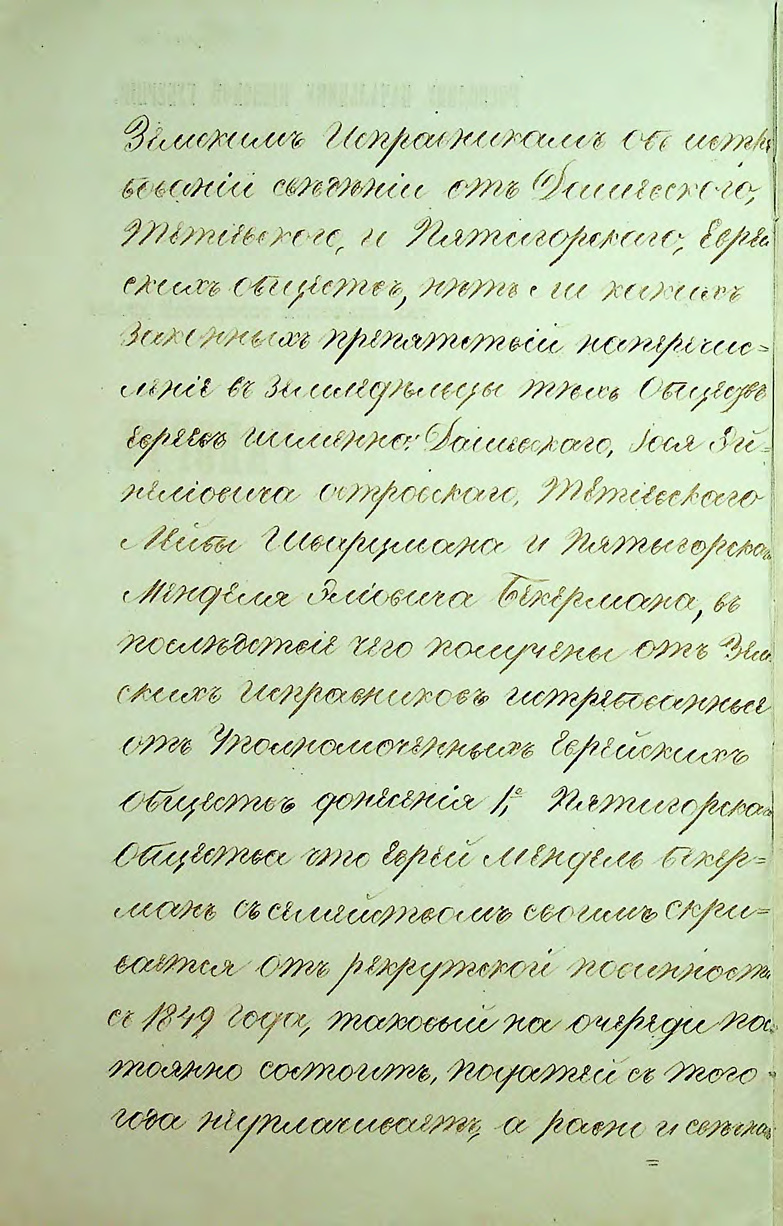 Земскимъ Исправникамъ объ истре
бованіи свѣдѣніи отъ Дашевского,
Тетіевского, и Пятигорскаго, Еврей
скихъ обществъ, нѣтъ ли какихъ
законныхъ препятствій наперечис=
леніе въ Земледѣльцы тѣхъ Обществъ
евреевъ иименно: Дашевскаго, Іося Эй=
островскаго, Тетіевскаго
Лейбы Шварцмана и Пятыгорскаго
Менделя Эліовича Бекермана, въ
послѣдствіе чего получены отъ Зем
скихъ Исправниковъ истребованные
отъ Уполномоченныхъ Еврейскихъ
обществъ донесенія 1е, Пятигорскаго
Общества что еврей Мендель Бекер=
манъ съсемействомъ своимъ скри=
вается отъ рекрутской повинности
съ 1849 года, таковый на очереди пос
тоянно состоитъ, податей съ того
года неуплачиваетъ, а равно и